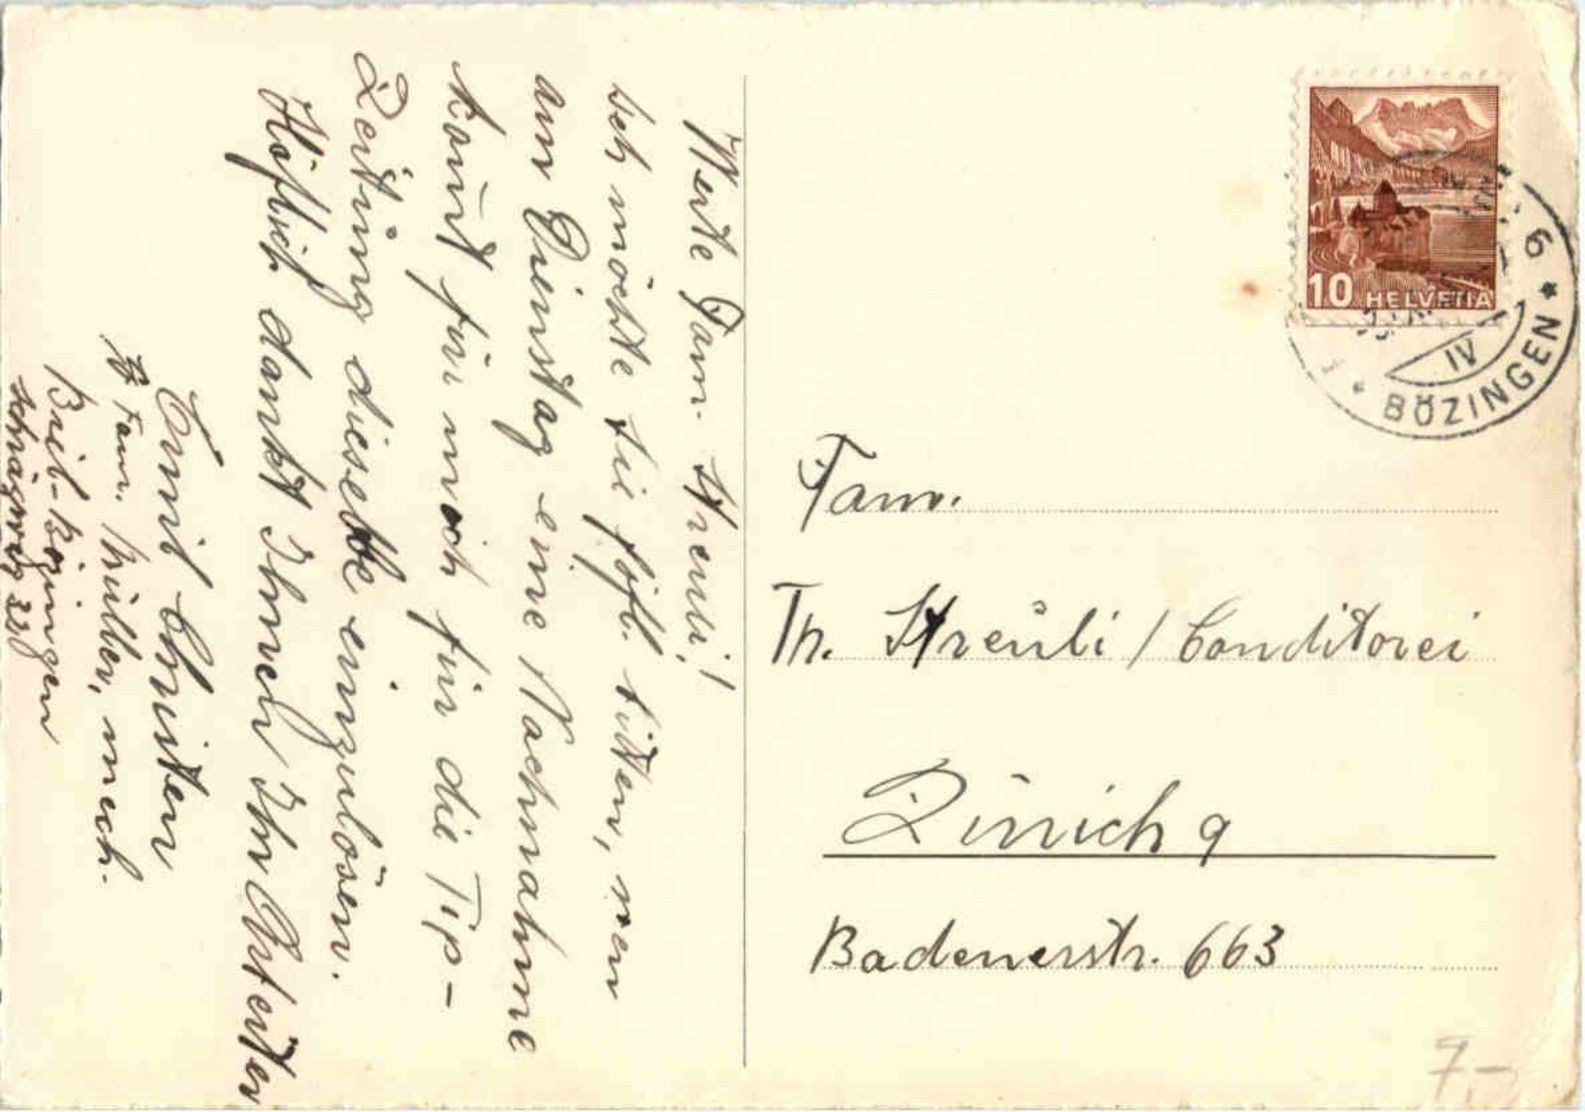 Werte Fam. Streuli!
Ich möchte Sie höfl. bitten, wen
am Dienstag eine Nachnahme
komt für mich für die Tip-
Zeitung dieselbe einzulösen.
Höflich dankt Ihnen Ihr Arbeiter
Emil Christen
Fam. Müller, mech.
Biel-Bözingen
10 HELVETIA
6
IV
* BÖZINGEN *
Fam.
Th. Streuli / Conditorei
Zürich 9
Badenerstr. 663
7.-